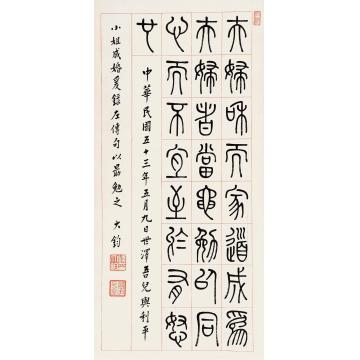 夫婦和而家道成為
夫婦者當黽勉以同
心而不宜至於有怒
也 中華民國五十三年五月九日世澤吾兒與利平
小姐成婚爰錄左傳句以勗勉之 大鈞